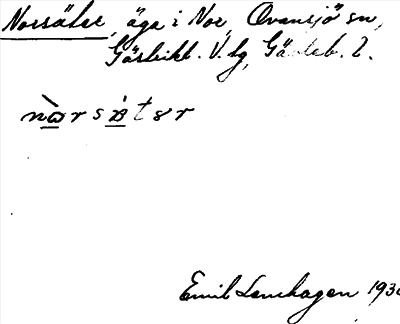 Norsäter, äga i Nor, Ovansjö sn,
Gästrikl. V. hg, Gävleb. l.
nωrsätər
Emil Lenhagen 193